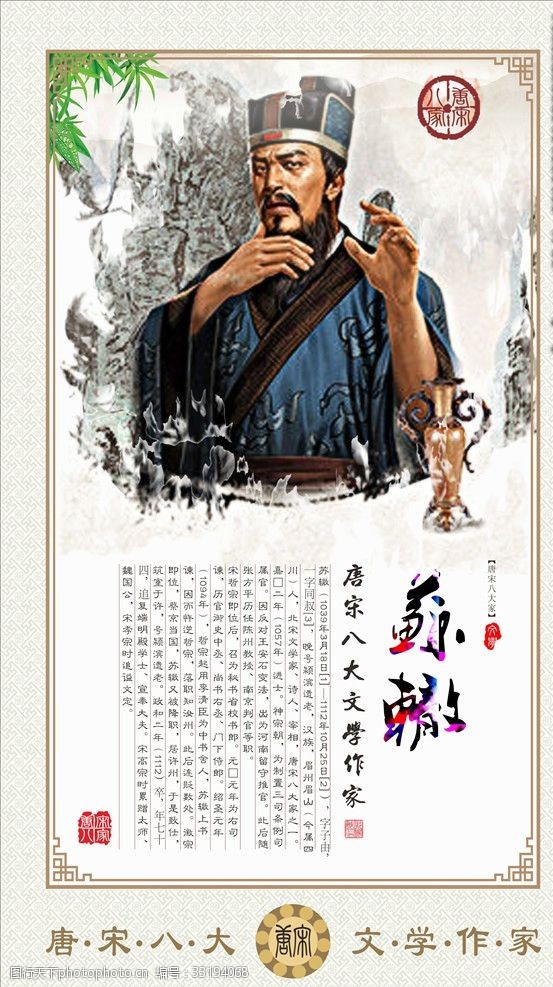 唐宋八家
【唐宋八大家】
蘇轍
唐宋八大文學作家
苏辙（1039年3月18日[1]—1112年10月25日[2]），字子由，
一字同叔[3]，晚号颍滨遗老，汉族，眉州眉山（今属四
川）人，北宋文学家、诗人、宰相，唐宋八大家之一。
嘉□二年（1057年）进士。神宗朝，为制置三司条例司
属官。因反对王安石变法，出为河南留守推官。此后随
张方平历任陈州教授、南京判官等职。
宋哲宗即位后，召为秘书省校书郎。元□元年为右司
谏，历官御史中丞、尚书右丞、门下侍郎。绍圣元年
（1094年），哲宗起用李清臣为中书舍人，苏辙上书
谏，因而忤逆哲宗，落职知汝州。此后连贬数处。徽宗
即位，蔡京当国，苏辙又被降职，居许州，于是致仕，
筑室于许，号颍滨遗老。政和二年（1112）卒，年七十
四，追复端明殿学士、宣奉大夫。宋高宗时累赠太师、
魏国公，宋孝宗时追谥文定。
唐·宋·八·大
唐宋
文·学·作·家
图行天下photophoto.cn 编号：33194068